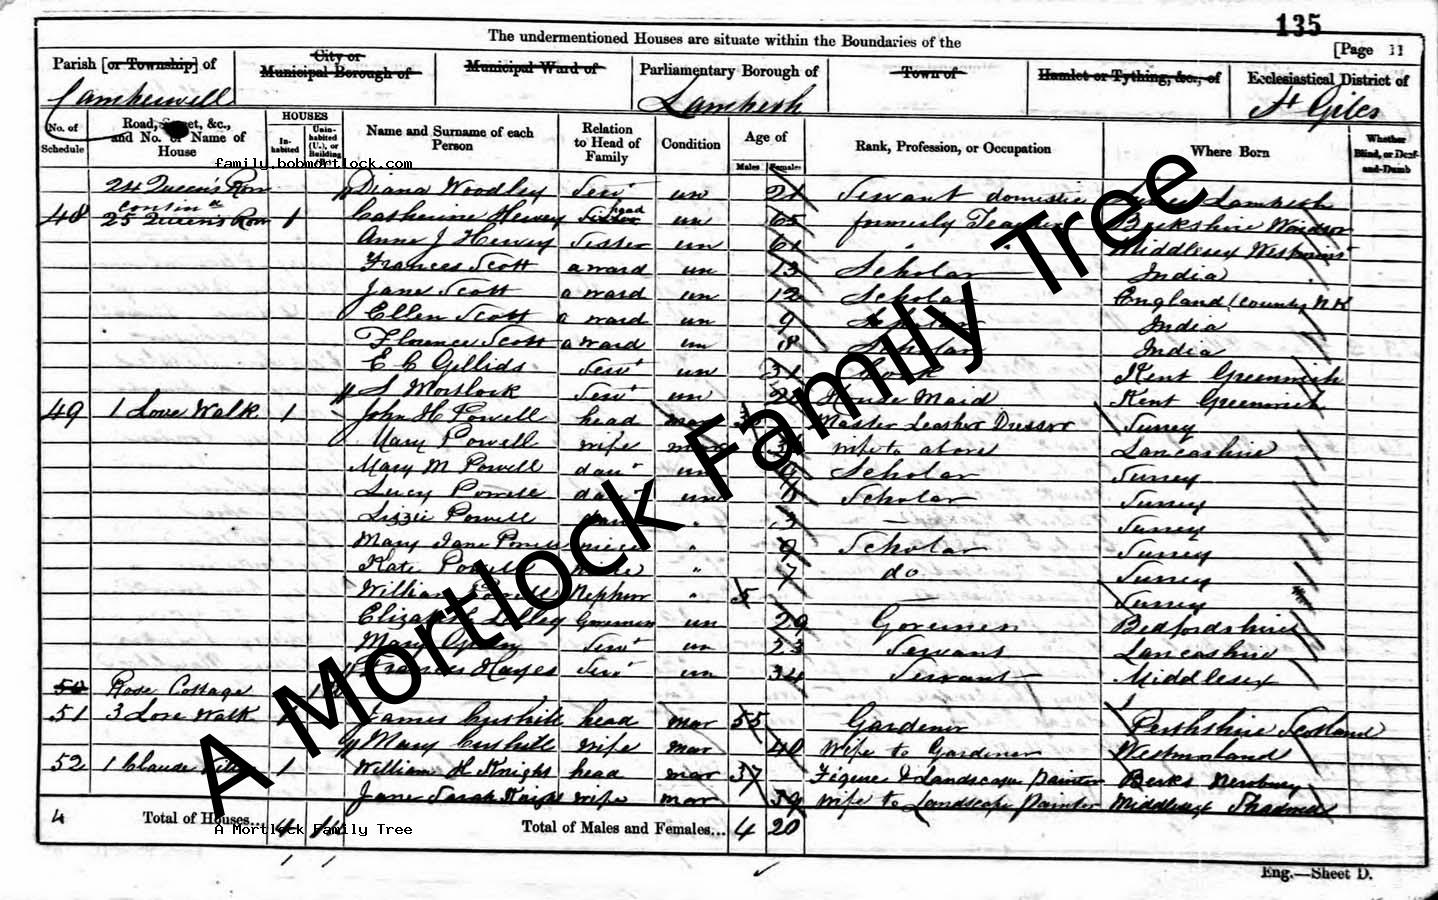 135
The undermentioned Houses are situate within the Boundaries of the
[Page 11
Parish [or Township] of
City or Municipal Borough of
Municipal Ward of
Parliamentary Borough of
Town of
Hamlet or Tything, &c., of
Ecclesiastical District of
Camberwell
Lambeth
St Giles
No. of Schedule
Road, Street, &c., and No. or Name of House
HOUSES
Inhabited
Uninhabited (U.), or Building
Name and Surname of each Person
Relation to Head of Family
Condition
Age of
Males
Females
Rank, Profession, or Occupation
Where Born
Whether Blind, or Deaf-and-Dumb
family.bobmortlock.com
24 Queen's Row Diana Woodley Servt un 21 Servant domestic Surrey Lambeth
48 25 Queen's Row 1 Catherine Hervey head un 65 formerly Teacher Berkshire Windsor
Anne J Hervey Sister un 61 Middlesex Westminsr
Frances Scott a ward un 13 Scholar India
Jane Scott a ward un 12 Scholar England (County N.K
Ellen Scott a ward un 9 Scholar India
Florence Scott a ward un 8 Scholar India
E C Gillids Servt un 31 Cook Kent Greenwich
S Mortlock Servt un House Maid Kent Greenwich
49 1 Love Walk 1 John H Powell head mar Master Leather Dresser Surrey
Mary Powell wife mar wife to above Lancashire
Mary M Powell daur un Scholar Surrey
Lucy Powell daur un Scholar Surrey
Lizzie Powell daur " 3 — Surrey
Mary Jane Powell niece " 9 Scholar Surrey
Kate Powell niece " 7 do Surrey
William Powell Nephew " 5 — Surrey
Elizabeth Lilley Governess un 29 Governess Bedfordshire
Mary Servt un 23 Servant Lancashire
Frances Hayes Servt un 34 Servant Middlesex
50 Rose Cottage 1
51 3 Love Walk 1 James Cuthill head mar 55 Gardener Perthshire Scotland
Mary Cuthill wife mar 40 Wife to Gardener Westmorland
52 1 Claude Villas 1 William H Knight head mar 37 Figure & Landscape Painter Berks Newbury
Jane Sarah Knight wife mar 39 wife to Landscape Painter Middlesex Shadwell
4 Total of Houses... 4 1 Total of Males and Females... 4 20
A Mortlock Family Tree
Eng.—Sheet D.
A Mortlock Family Tree